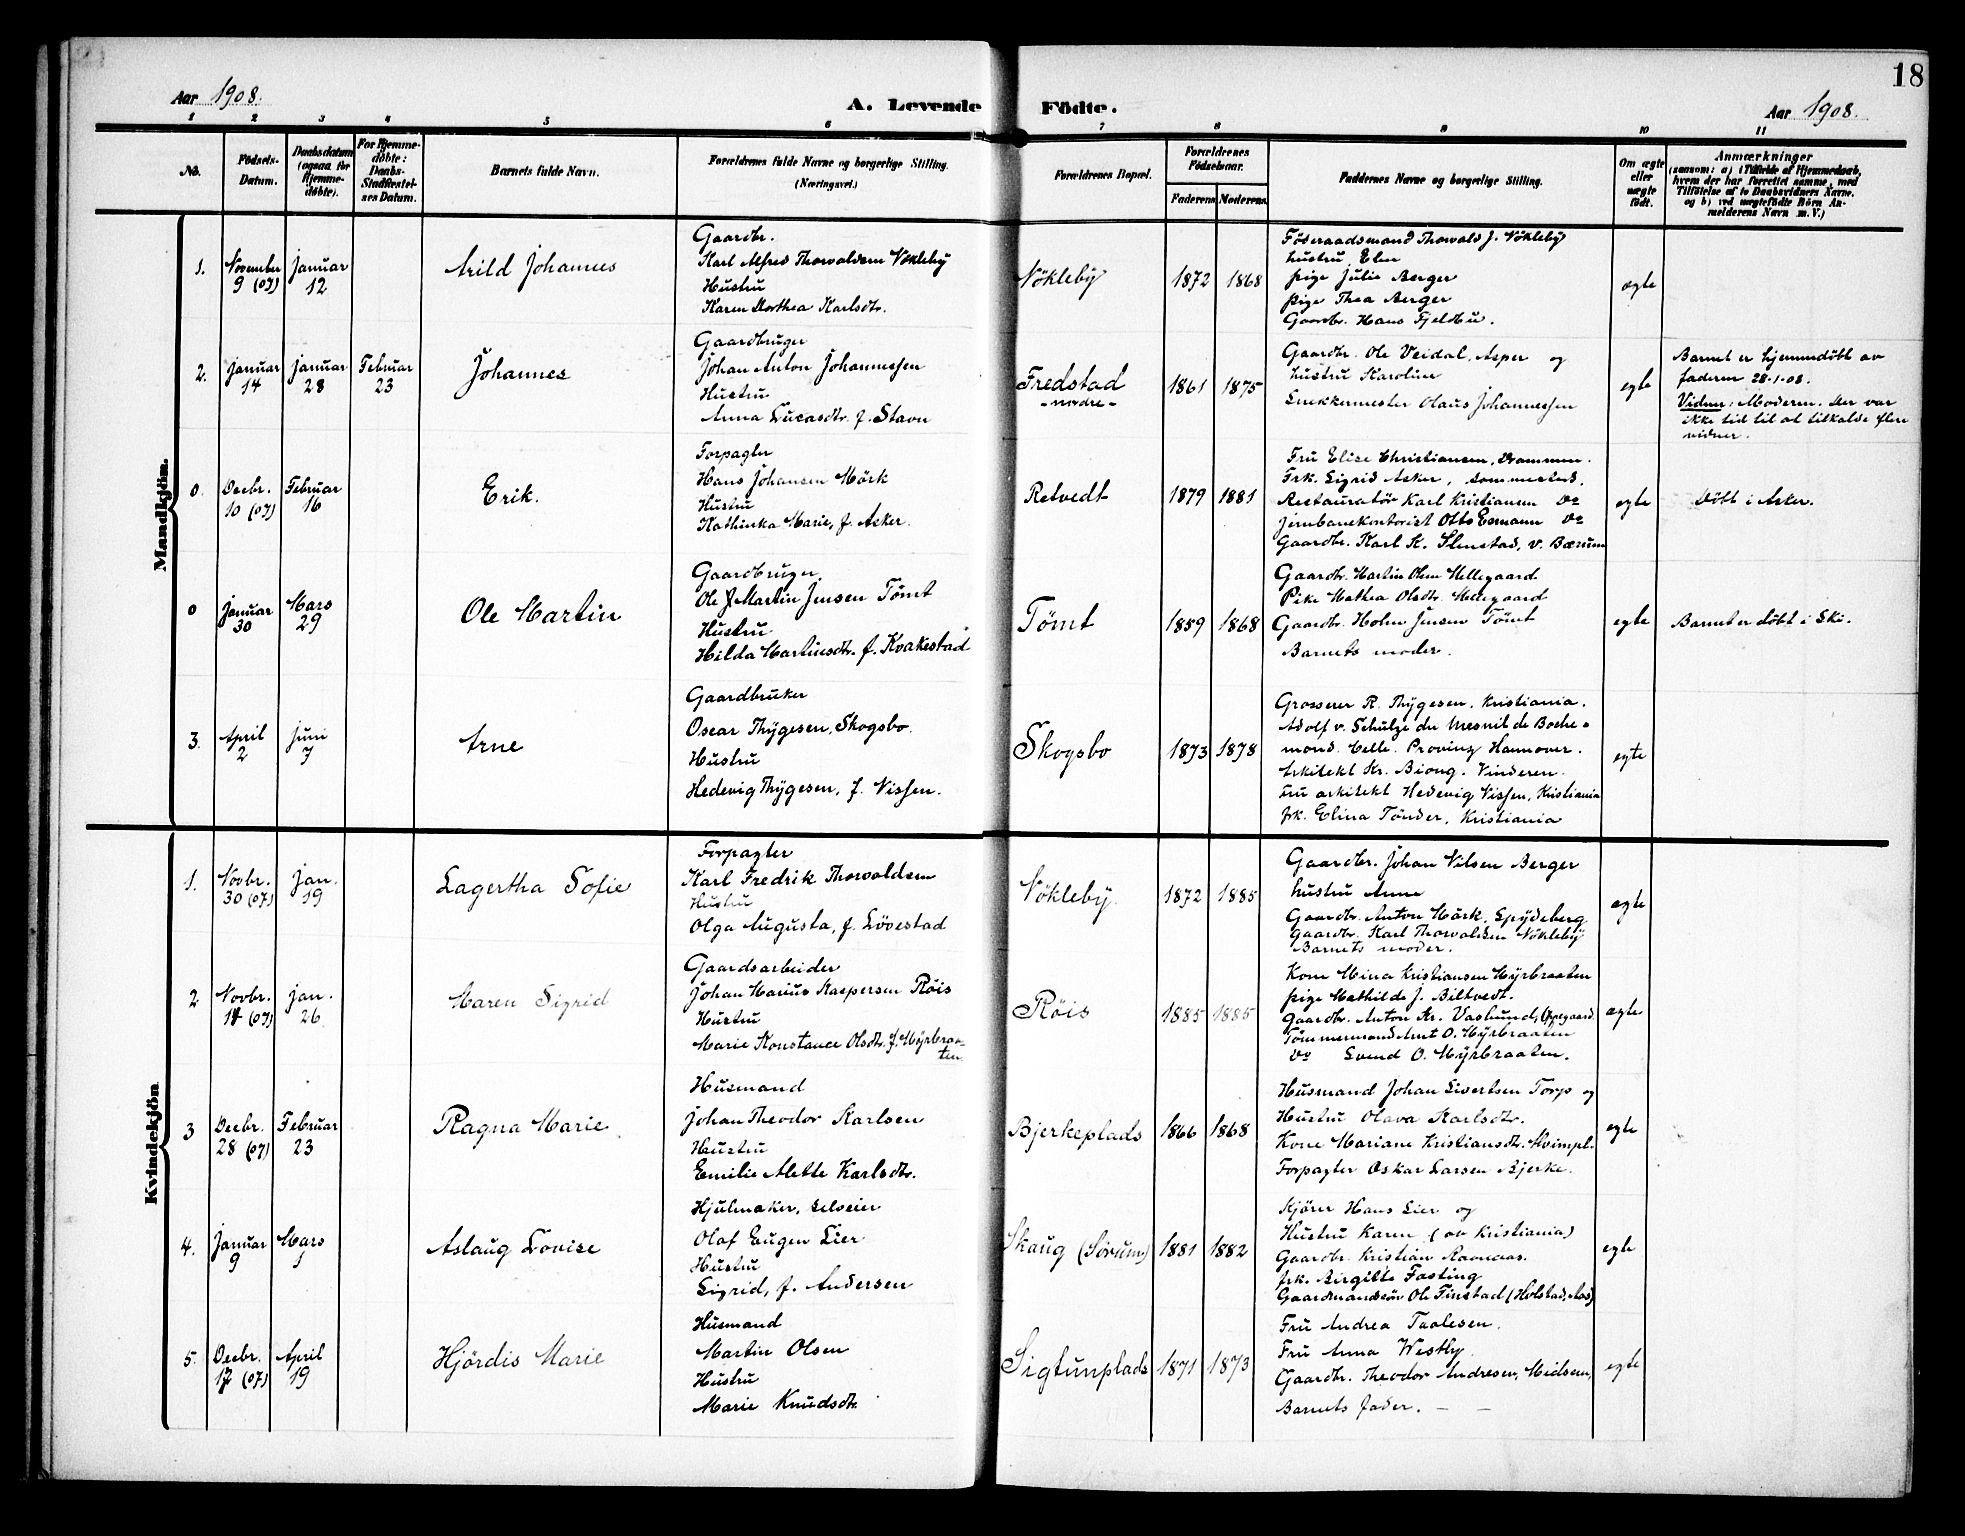 18
Aar 1908.
A. Levende Födte.
Aar 1908.
1 2 3 4 5 6 7 8 9 10 11
No.
Födsels-
Datum.
Daabsdatum
(ogsaa for
Hjemme-
döbte).
For Hjemme-
döbte:
Daabs-
Stadfæstel-
ses Datum.
Barnets fulde Navn.
Forældrenes fulde Navne og borgerlige Stilling.
(Næringsvei.)
Forældrenes Bopæl.
Forældrenes
Födselsaar.
Faderens
Moderens
Faddernes Navne og borgerlige Stilling.
Om ægte
eller
uægte
födt.
Anmærkninger
(saasom: a) i Tilfælde af Hjemmedaab,
hvem der har forrettet samme, med
Tilföielse af to Daabsvidners Navne,
og b) ved uægtefödte Börn An-
melderens Navn m. V.)
Mandkjön.
1.
November
9 (07)
Januar
12
Arild Johannes
Gaardbr.
Karl Alfred Thorvaldsen Nökleby
Hustru
Karen Dorthea Karlsdtr.
Nökleby
1872
1868
Föderaadsmand Thorvald J. Nökleby
hustru Elen
pige Julie Berger
pige Thea Berger
Gaardbr. Hans Fjeldbu.
ægte
2.
Januar
14
Januar
28
Februar
23
Johannes
Gaardbruger
Johan Anton Johannessen
Hustru
Anna Lucasdtr. f. Stavn
Fredstad
- nedre -
1861
1875
Gaardbr. Ole Veidal, Asper og
hustru Karoline
Snekkermester Olaus Johannessen
egte
Barnet er hjemmedöbt av
faderen 28-1-08.
Vidner: Moderen. Der var
ikke tid til at tilkalde flere
vidner.
0.
Decbr.
10 (07)
Februar
16
Erik.
Forpagter
Hans Johansen Mörk
Hustru
Kathinka Marie, f. Asker.
Retvedt
1879
1881
Fru Elise Christiansen, Drammen.
Frk. Sigrid Asker, sammesteds,
Restauratør Karl Kristiansen Do
Jernbanekontorist Otto Do
Gaardbr. Karl K. v. Bærum
egte
Döbt i Asker.
0
Januar
30
Mars
29
Ole Martin
Gaardbruger
Ole Martin Jensen Tömt
Hustru
Hilda Martinsdtr. f. Kvakestad
Tömt
1859
1868
Gaardbr. Martin Olsen Hellegaard
Pike Mathea Olsdtr. Hellegaard
Gaardbr. Holm Jensen Tömt
Barnets moder.
egte
Barnet er döbt i Ski.
3.
April
2
Juni
7
Arne
Gaardbruker
Oscar Thygesen, Skogsbo.
Hustru
Hedevig Thygesen, f. Nissen.
Skogsbo
1873
1878
Grosserer R. Thygesen, Kristiania.
Adolf v. Schulze du Mesnil de Boche-
mond. Celle. Provinz Hannover.
Arkitekt Kr. Biong. Vinderen.
Fru arkitekt Hedevig Nissen, Kristiania
frk. Elina Tönder, Kristiania
egte
Kvindekjön
1.
Novbr.
30 (07)
Jan.
19
Lagertha Sofie
Forpagter
Karl Fredrik Thorvaldsen
Hustru
Olga Augusta, f. Lövestad
Nökleby.
1872
1885
Gaardbr. Johan Nilsen Berger
hustru Anne
Gaardbr. Anton Mörk, Spydeberg
Gaardbr. Karl Thorvaldsen Nökleby
Barnets moder.
ægte
2
Novbr.
14 (07)
Jan.
26
Maren Sigrid
Gaardsarbeider
Johan Marius Kaspersen Röis
Hustru
Marie Konstance Olsdtr. f. Myrbraa-
ten
Röis
1885
1885
Kone Mina Kristiansen Myrbraaten
pige Mathilde J. Biltvedt.
Gaardbr. Anton Kr. Vaslund, Oppegaard
Tömmermand Amt O. Myrbraaten
Do Svend O. Myrbraaten.
ægte
3
Decbr.
28 (07)
Februar
23
Ragna Marie
Husmand
Johan Theodor Karlsen
Hustru
Emilie Alette Karlsdtr.
Bjerkeplads
1866
1868
Husmand Johan Sivertsen Torp og
Hustru Olava Karlsdtr.
Kone Mariane Kristiansdtr. Kvimpl.
Forpagter Oskar Larsen Bjerke.
egte
4.
Januar
9
Mars
1
Aslaug Lovise
Hjulmaker, selveier
Olaf Eugen Lier
Hustru
Sigrid, f. Andersen
Skaug (Sørum)
1881
1882
Kjörer Hans Lier og
Hustru Karen (av Kristiania)
Gaardbr. Kristian Ravnaas.
frk. Birgitte Fasting
Gaardmandssön Ole Finstad (Holstad, Aas)
egte
5.
Decbr.
17 (07)
April
19
Hjördis Marie
Husmand
Martin Olsen
Hustru
Marie Knudsdtr.
Sigtunplads
1871
1873
Fru Andrea Taalesen.
Fru Anna Westby.
Gaardbr. Theodor Andresen, Midsem,
Barnets fader. - -
egte